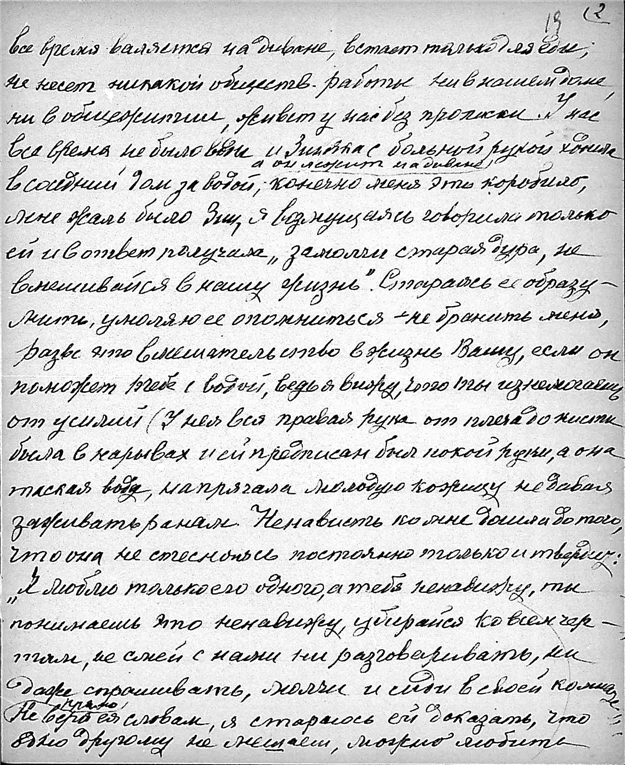 19 12
все время валяется на диване, встает только для еды,
не несет никакой обществ. работы ни в нашем доме,
ни в общежитии, живет у нас без прописки. У нас
все время не было воды и Зинка с больной рукой ходила
а он лежит на диване,
в соседний дом за водой, конечно меня это коробило,
мне жаль было Зину, я возмущаясь говорила только
ей и в ответ получала „замолчи старая дура, не
вмешивайся в нашу жизнь". Стараясь ее образу-
мить, умоляю ее опомниться – не бранить меня,
разве это вмешательство в жизнь Вашу, если он
поможет тебе с водой, ведь я вижу, что ты изнемогаешь
от усилий (У нея вся правая рука от плеча до кисти
была в нарывах и ей предписан был покой руки, а она
таская воду, напрягала молодую кожицу не давая
заживать ранам. Ненависть ко мне дошла до того,
что она не стесняясь постоянно только и твердит:
„Я люблю только его одного, а тебя ненавижу, ты
понимаешь это ненавижу, убирайся ко всем чер-
тям, не смей с нами ни разговаривать, ни
даже спрашивать, молчи и сиди в своей комнате"
Не веря ея словам, я стараюсь ей доказать, что
одно другому не мешает, можно любить